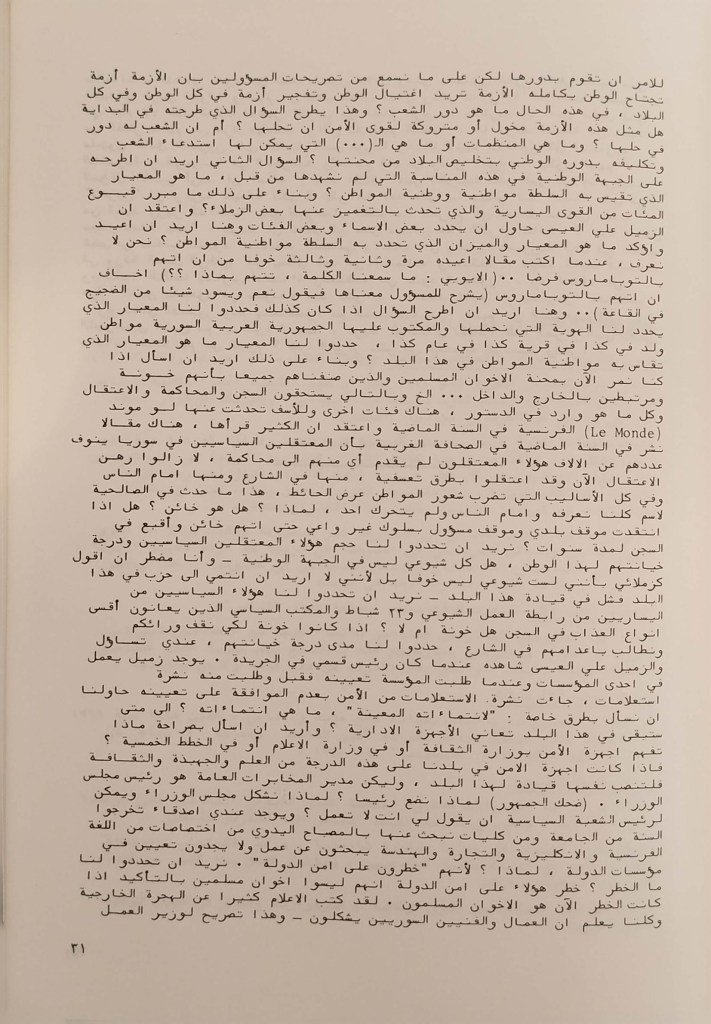 للامر ان تقوم بدورها لكن على ما نسمع من تصريحات المسؤولين بان الأزمة أزمة
تجتاح الوطن بكامله الأزمة تريد اغتيال الوطن وتفجير أزمة في كل الوطن وفي كل
البلاد ، في هذه الحال ما هو دور الشعب ؟ وهذا يطرح السؤال الذي طرحته في البداية
هل مثل هذه الأزمة مخول أو متروكة لقوى الأمن ان تحلها ؟ أم ان الشعب له دور
في حلها ؟ وما هي المنظمات أو ما هي الـ(...) التي يمكن لها استدعاء الشعب
وتكليفه بدوره الوطني بتخليص البلاد من محنتها ؟ السؤال الثاني اريد ان اطرحه
على الجبهة الوطنية في هذه المناسبة التي لم نشهدها من قبل ، ما هو المعيار
الذي تقيس به السلطة مواطنية ووطنية المواطن ؟ وبناء على ذلك ما مبرر قبـوع
المئات من القوى اليسارية والذي تحدث بالتغميز عنها بعض الزملاء؟ واعتقد ان
الزميل علي العيسى حاول ان يحدد بعض الاسماء وبعض الفئات وهنا اريد ان اعيـد
واؤكد ما هو المعيار والميزان الذي تحدد به السلطة مواطنية المواطن ؟ نحن لا
نعرف ، عندما اكتب مقالا اعيده مرة وثانية وثالثة خوفا من ان اتهم
بالتوباماروس فرضا ..(الايوبي : ما سمعنا الكلمة ، تتهم بماذا ؟؟) اخـاف
ان اتهم بالتوباماروس (يشرح للمسؤول معناها فيقول نعم ويسود شيئا من الضجيج
في القاعة).. وهنا اريد ان اطرح السؤال اذا كان كذلك فحددوا لنا المعيار الذي
يحدد لنا الهوية التي نحملها والمكتوب عليها الجمهورية العربية السورية مواطن
ولد في كذا في قرية كذا في عام كذا ، حددوا لنا المعيار ما هو المعيار الذي
تقاس به مواطنية المواطن في هذا البلد ؟ وبناء على ذلك اريد ان اسأل اذا
كنا نمر الآن بمحنة الاخوان المسلمين والذين صنفناهم جميعا بأنهم خـونة
ومرتبطين بالخارج والداخل ... الخ وبالتالي يستحقون السجن والمحاكمة والاعتقال
وكل ما هو وارد في الدستور ، هناك فئات اخرى وللأسف تحدثت عنها لـو موند
(Le Monde) الفرنسية في السنة الماضية واعتقد ان الكثير قرأها ، هناك مقـالا
نشر في السنة الماضية في الصحافة الغربية بأن المعتقلين السياسيين في سوريا ينوف
عددهم عن الالاف هؤلاء المعتقلون لم يقدم أي منهم الى محاكمة ، لا زالوا رهـن
الاعتقال الآن وقد اعتقلوا بطرق تعسفية ، منها في الشارع ومنها امام الناس
وفي كل الأساليب التي تضرب شعور المواطن عرض الحائط ، هذا ما حدث في الصالحية
لاسم كلنا نعرفه وامام الناس ولم يتحرك احد ، لماذا ؟ هل هو خائن ؟ هل اذا
انتقدت موقف بلدي وموقف مسؤول بسلوك غير واعي حتى اتهم خائن وأقبع في
السجن لمدة سنوات ؟ نريد ان تحددوا لنا حجم هؤلاء المعتقلين السياسيين ودرجة
خيانتهم لهذا الوطن ، هل كل شيوعي ليس في الجبهة الوطنية ـ وأنا مضطر ان اقول
كزملائي بأنني لست شيوعي ليس خوفا بل لأنني لا اريد ان انتمي الى حزب في هذا
البلد فشل في قيادة هذا البلد ـ نريد ان تحددوا لنا هؤلاء السياسيين من
اليساريين من رابطة العمل الشيوعي و٢٣ شباط والمكتب السياسي الذين يعانون أقسى
انواع العذاب في السجن هل خونة ام لا ؟ اذا كانوا خونة لكي نقف ورائكم
ونطالب باعدامهم في الشارع ، حددوا لنا مدى درجة خيانتهم ، عندي تسـاؤل
والزميل علي العيسى شاهده عندما كان رئيس قسمي في الجريدة . يوجد زميل يعمل
في احدى المؤسسات وعندما طلبت المؤسسة تعيينه فقبل وطلبت منه نشرة
استعلامات ، جاءت نشرة. الاستعلامات من الأمن بعدم الموافقة على تعيينه حاولنا
ان نسأل بطرق خاصة : "لانتماءاته المعينة" ، ما هي انتماءاته ؟ الى متى
ستبقى في هذا البلد تعاني الأجهزة الادارية ؟ وأريد ان اسأل بصراحة ماذا
تفهم اجهزة الأمن بوزارة الثقافة أو في وزارة الاعلام أو في الخطط الخمسية ؟
فاذا كانت اجهزة الامن في بلدنا على هذه الدرجة من العلم والجهبذة والثقـافة
فلتنصب نفسها قيادة لهذا البلد ، وليكن مدير المخابرات العامة هو رئيس مجلس
الوزراء . (ضحك الجمهور) لماذا نضع رئيسا ؟ لماذا نشكل مجلس الوزراء ويمكن
لرئيس الشعبة السياسية ان يقول لي انت لا تعمل ؟ ويوجد عندي اصدقاء تخرجوا
السنة من الجامعة ومن كليات نبحث عنها بالمصباح اليدوي من اختصاصات من اللغة
الفرنسية والانكليزية والتجارة والهندسة يبحثون عن عمل ولا يجدون تعيين في
مؤسسات الدولة ، لماذا ؟ لأنهم "خطرون على امن الدولة" . نريد ان تحددوا لنا
ما الخطر ؟ خطر هؤلاء على امن الدولة انهم ليسوا اخوان مسلمين بالتأكيد اذا
كانت الخطر الآن هو الاخوان المسلمون . لقد كتب الاعلام كثيرا عن الهجرة الخارجية
وكلنا يعلم ان العمال والفنيين السوريين يشكلون ـ وهذا تصريح لوزير العمـل
٣١